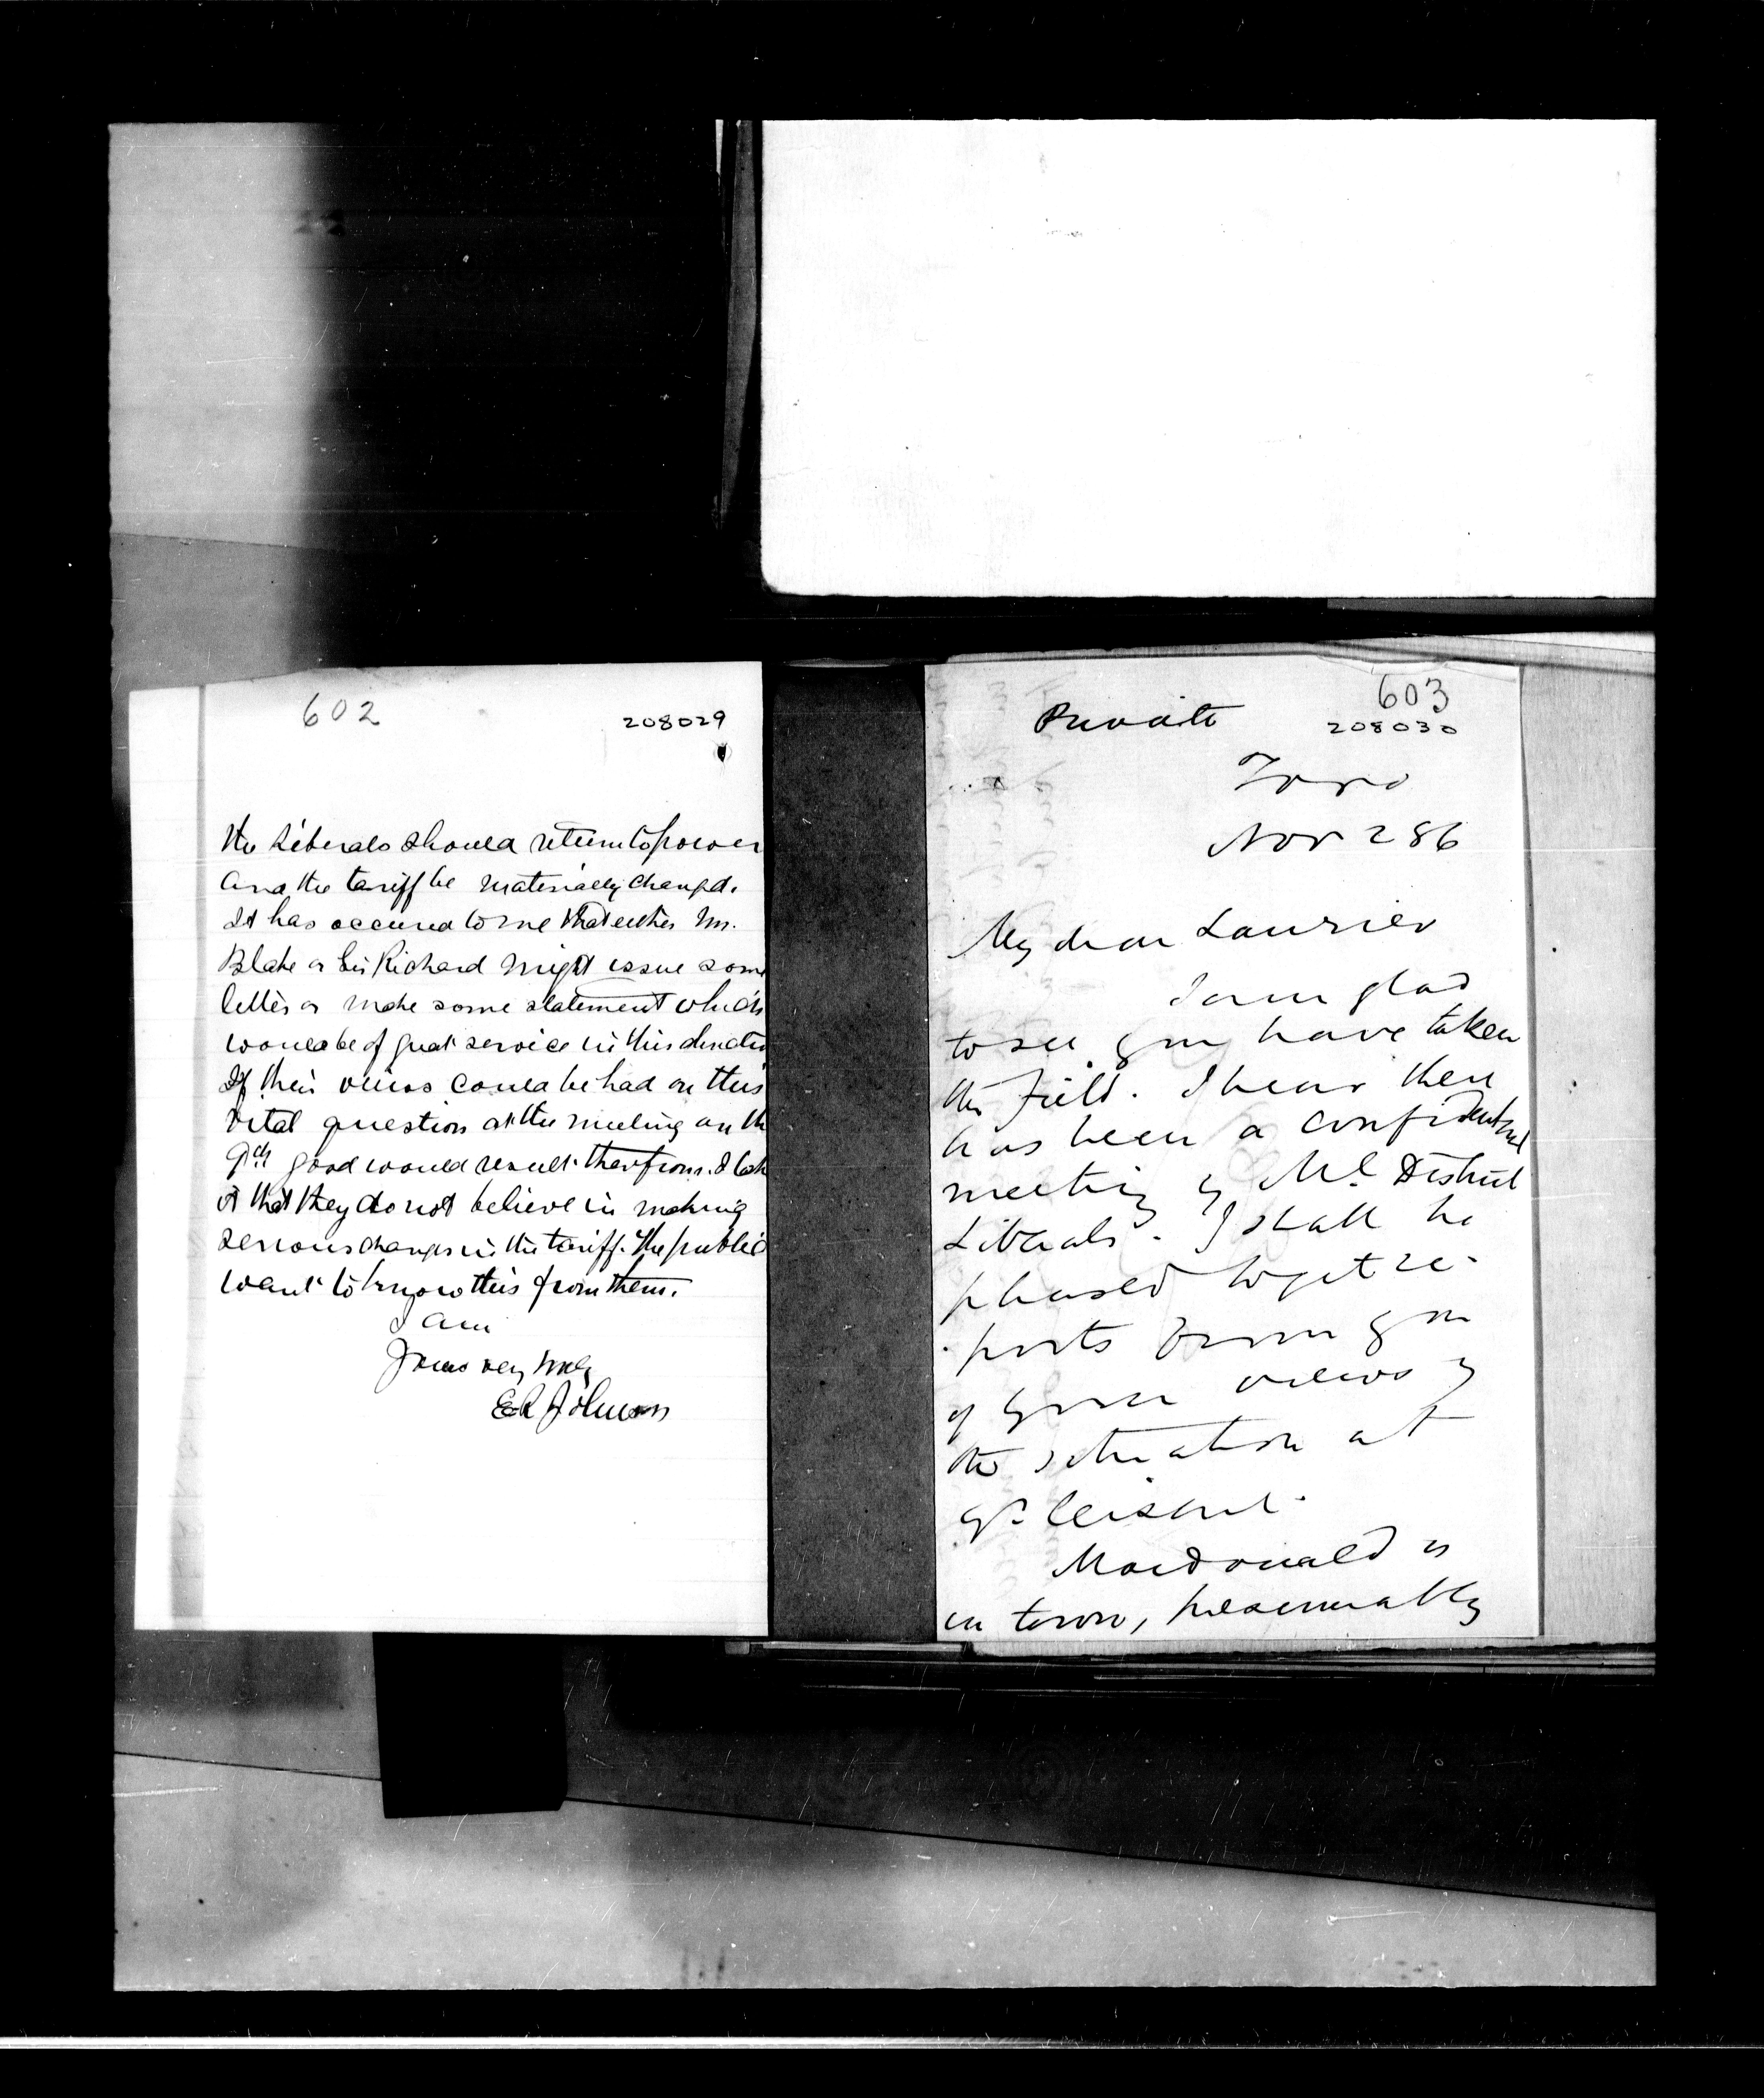 602
208029
the Liberals should return to power
and the tariff be materially changed.
It has occured to me that either Mr.
Blake or Sir Richard might issue some
letter or make some statement which
would be of great service in this direction
If their views could be had on this
vital question at the meeting on the
9th good would result therefrom. I take
it that they do not believe in making
serious changes in the tariff. The public
want to know this from them.
I am
Yours very truly
E R Johnson
603
Private
208030
Toro
Nov 2 86
My dear Laurier
I am glad
to see you have taken
the field. I hear there
has been a confidential
meeting of Ml District
Liberals. I shall be
pleased to get re-
ports from you
of your views of
the situation at
Macdonald is
in town, presumably